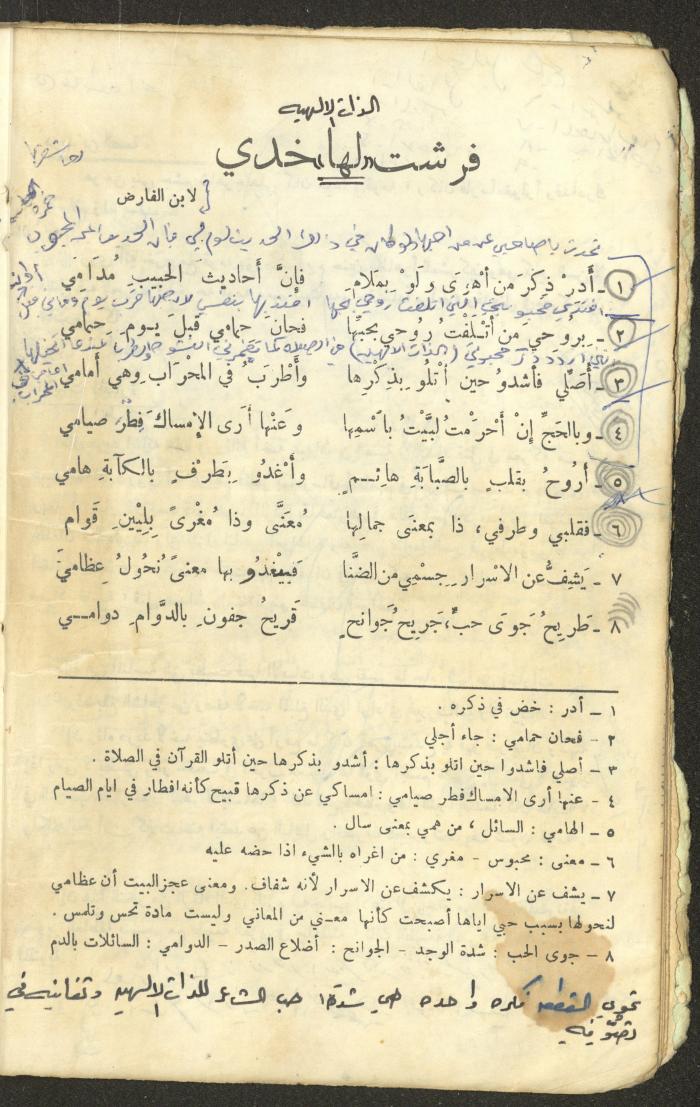 الذات الالهيه
فرشت «لها» خدي
لابن الفارض
تحدث يا صاحبي عن من احبها ولو كان في ذلك الحديث لوم لي فان الحديث
١ ـ أَدِرْ ذِكْرَ مَن أهْوَى ولَوْ بِمَلامِ فإنَّ أحاديثَ الحَبيبِ مُدَامَي
روحي لحبها
٢ ـ بروُحَي مَن أتْلَفْتُ رُوحي بحبِّها فحانَ حمامي قبلَ يومِ حِمامي
محبوبتي (الذات الالهيه)
٣ ـ أُصَلِّي فأشدو حين أتْلُو بِذِكْرِها وأطْرَبُ في المحْرَابِ وهي أمامي
المحراب
٤ ـ وبالحَجِّ إنْ أحْرَمْتُ لَبَّيْتُ باسْمِها وعَنْها أرَى الإمْساكَ فِطْرَ صيامي
٥ ـ أرُوحُ بقلبٍ بالصَّبابَةِ هائـمٍ وأغْدُو بِطَرْفٍ بالكآبةِ هامي
٦ ـ فقلبي وطرفي، ذا بمعنَى جمالِها مُعَنَّى وذا مُغْرىً بِلِيْنِ قَوام
٧ ـ يَشِفُّ عن الاسرارِ جِسْمِي من الضَّنَا فَيَغْدُو بها معنىً نُحُولُ عِظامي
٨ ـ طَرِيحُ جَوَى حبٍّ، جَرِيحُ جَوانحٍ قَريحُ جفونٍ بالدَّوامِ دوامـي
١ ـ أدر : خض في ذكره .
٢ - فحان حمامي : جاء أجلي
٣ - أصلي فاشدوا حين اتلو بذكرها : أشدو بذكرها حين أتلو القرآن في الصلاة .
٤ - عنها أرى الامساك فطر صيامي : امساكي عن ذكرها قبيح كأنه افطار في ايام الصيام
٥ ـ الهامي : السائل ، من همي بمعنى سال .
٦ ـ معنى : محبوس - مغري : من اغراه بالشيء اذا حضه عليه
٧ ـ يشف عن الاسرار : يكشف عن الاسرار لأنه شفاف. ومعنى عجز البيت أن عظامي
لنحولها بسبب حبي اياها أصبحت كأنها معـنى من المعاني وليست مادة تحس وتلمس .
٨ - جوى الحب : شدة الوجد - الجوانح : أضلاع الصدر - الدوامي : السائلات بالدم
تحوي القطعه فكره واحده هي شدة حب الشاعر للذات الالهيه وتفانيه في
تصوّفه